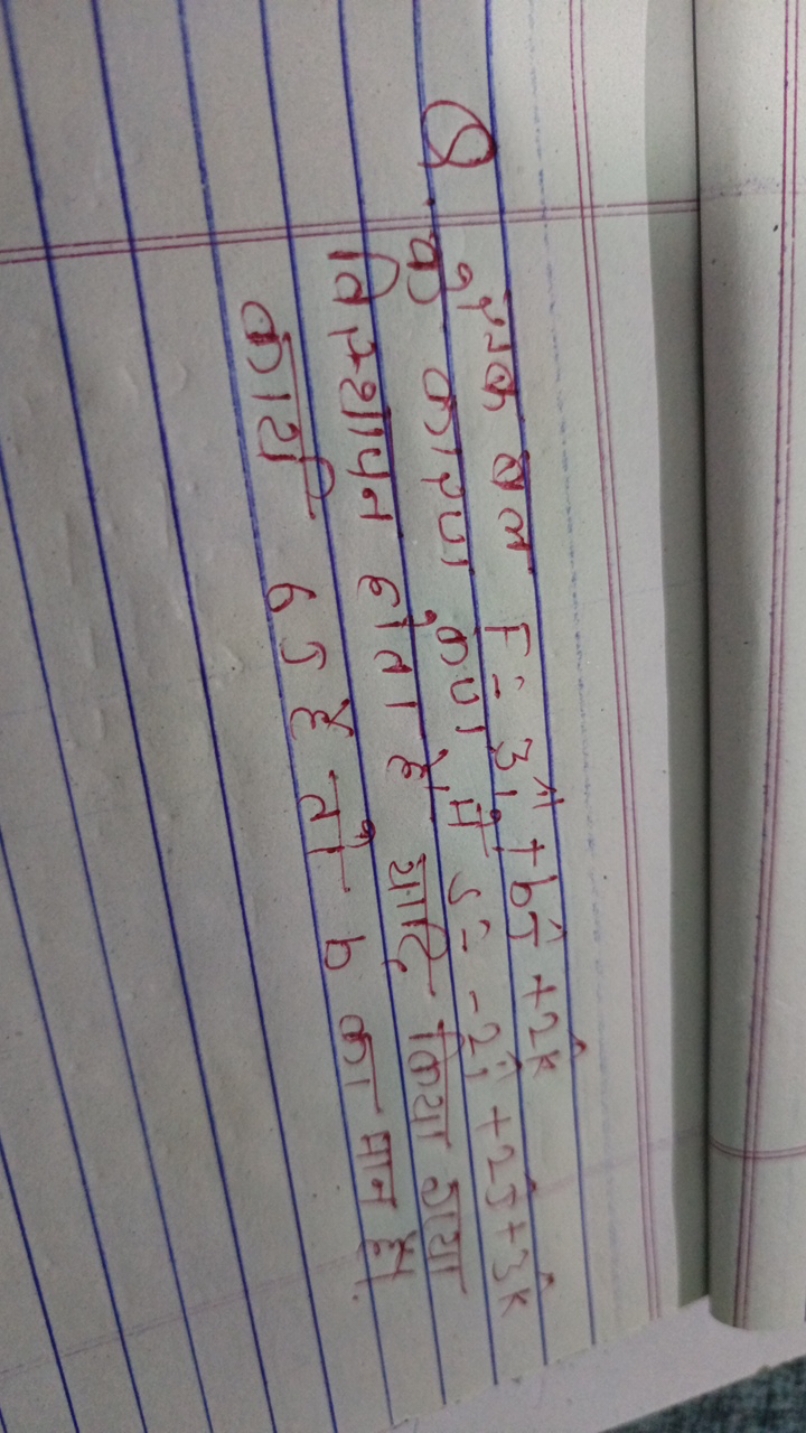 Q. एक बल F = 3î + bĵ + 2k̂
के कारण कण में S = -2î + 2ĵ + 3k̂
विस्थापन होता है यदि किया गया
कार्य 6J है तो b का मान है।